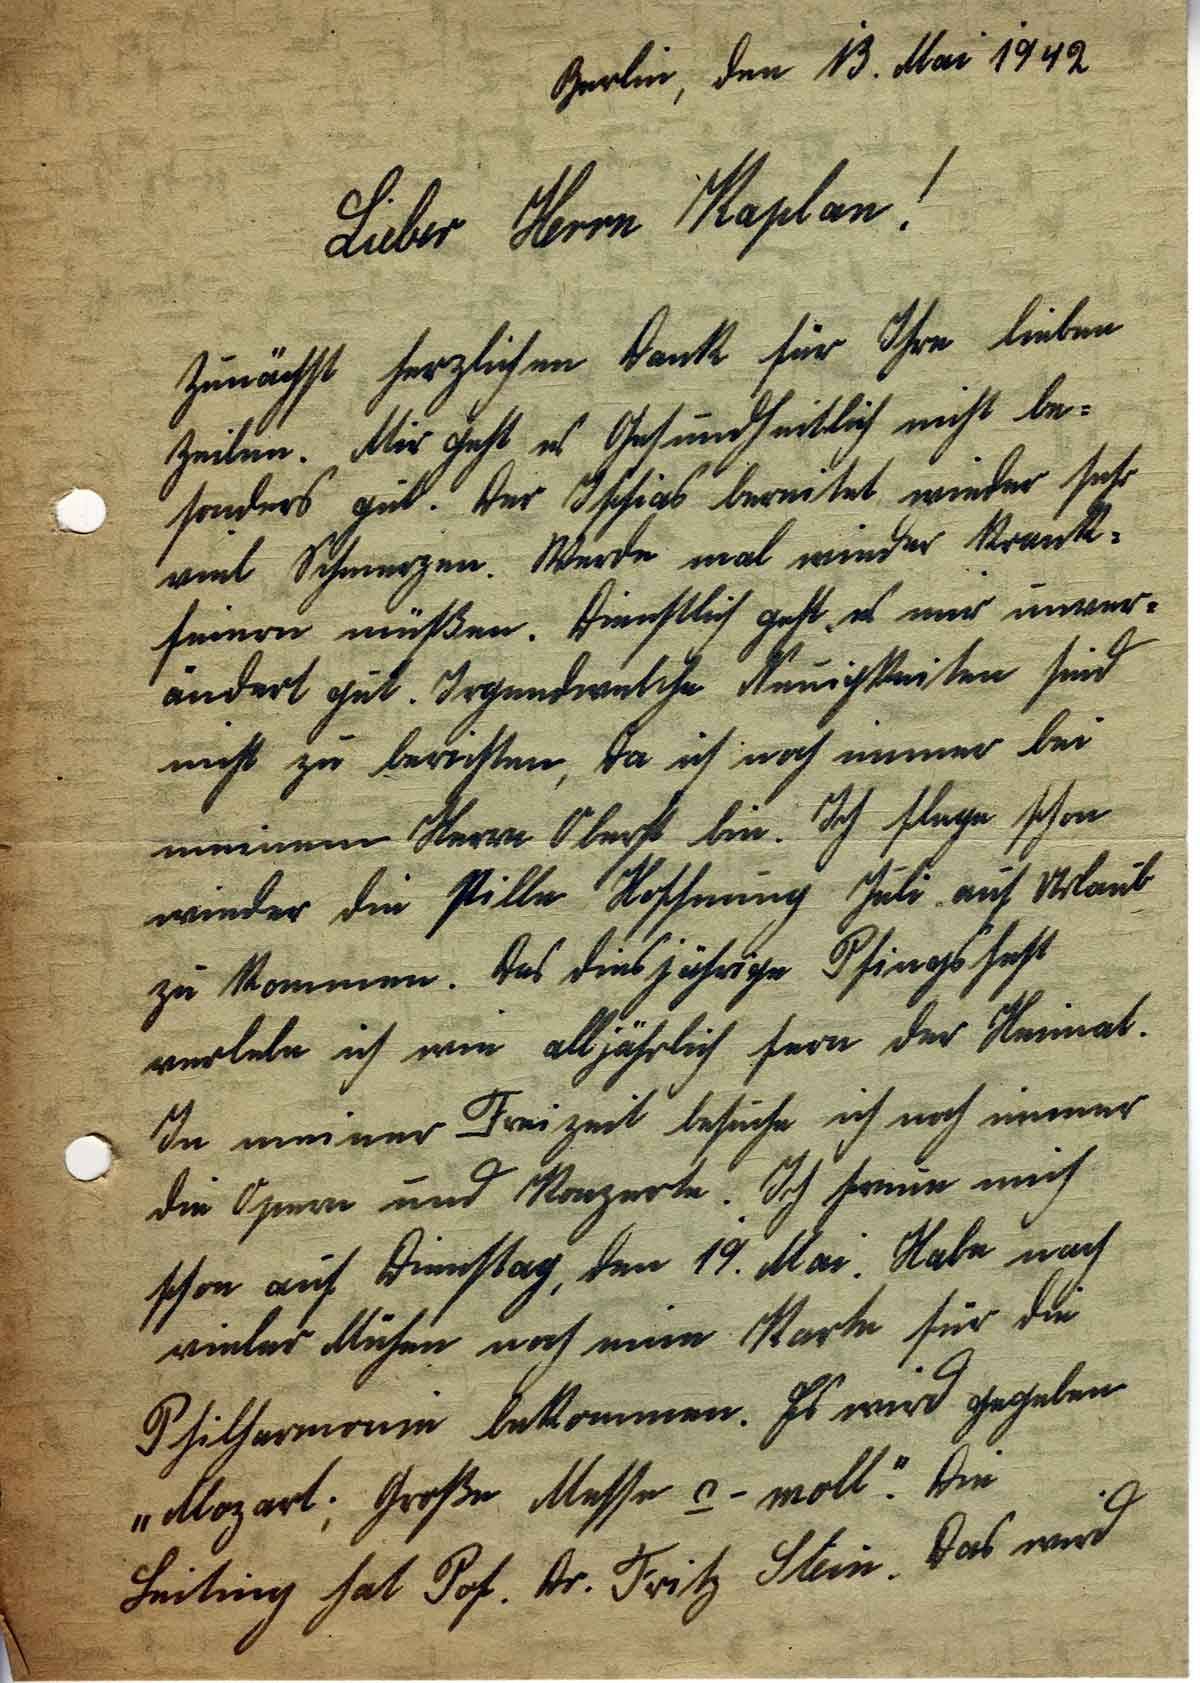 Berlin, den 13. Mai 1942
Lieber Herrn Kaplan!
Zunächst herzlichen Dank für Ihre lieben
Zeilen. Mir geht es Gesundheitlich nicht be=
sonders gut. Der Ischias bereitet wieder sehr
viel Schmerzen. Werde mal wieder Krank=
feiern müßen. Dienstlich geht es mir unver=
ändert gut. Irgendwelche Neuigkeiten sind
nicht zu berichten, da ich noch immer bei
meinem Herrn Oberst bin. Ich hege schon
wieder die stille Hoffnung Juli auf Urlaub
zu kommen. Das diesjährige Pfingsfest
verlebe ich wie alljährlich fern der Heimat.
In meiner Freizeit besuche ich noch immer
die Opern und Konzerte. Ich freue mich
schon auf Dienstag, den 19. Mai. Habe nach
vieler Mühen noch eine Karte für die
Philharmonie bekommen. Es wird gegeben
„Mozart; Große Messe c-moll". Die
Leitung hat Pof. Dr. Fritz Stein. Das wird